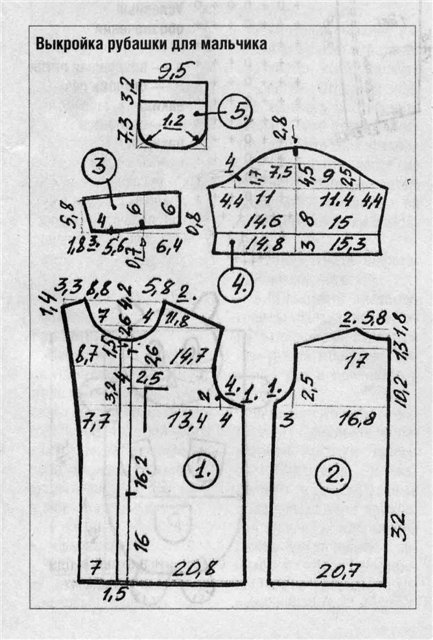 Выкройка рубашки для мальчика
9,5
3,2
7,3
1.2
5.
2,8
3
4
1,7 7,5 4,5 9 2,5
4,4 11 11.4 4,4
5,8
4 6 6
0,8
14.6 8 15
1,8 3. 5,6 0,7 6,4
14,8 3 15,3
4.
1,4
3,3 8,8 4,2 5,8 2.
7 2,6 4 11,8
2. 5,8 1,8
8,7 1,5 2,6 14,7
17
13
3,2 4 2,5
2 4. 1. 1.
2,5
10,2
7,7 13,4 4
3 16,8
16,2
1.
2.
16
32
7 20,8
20,7
1,5